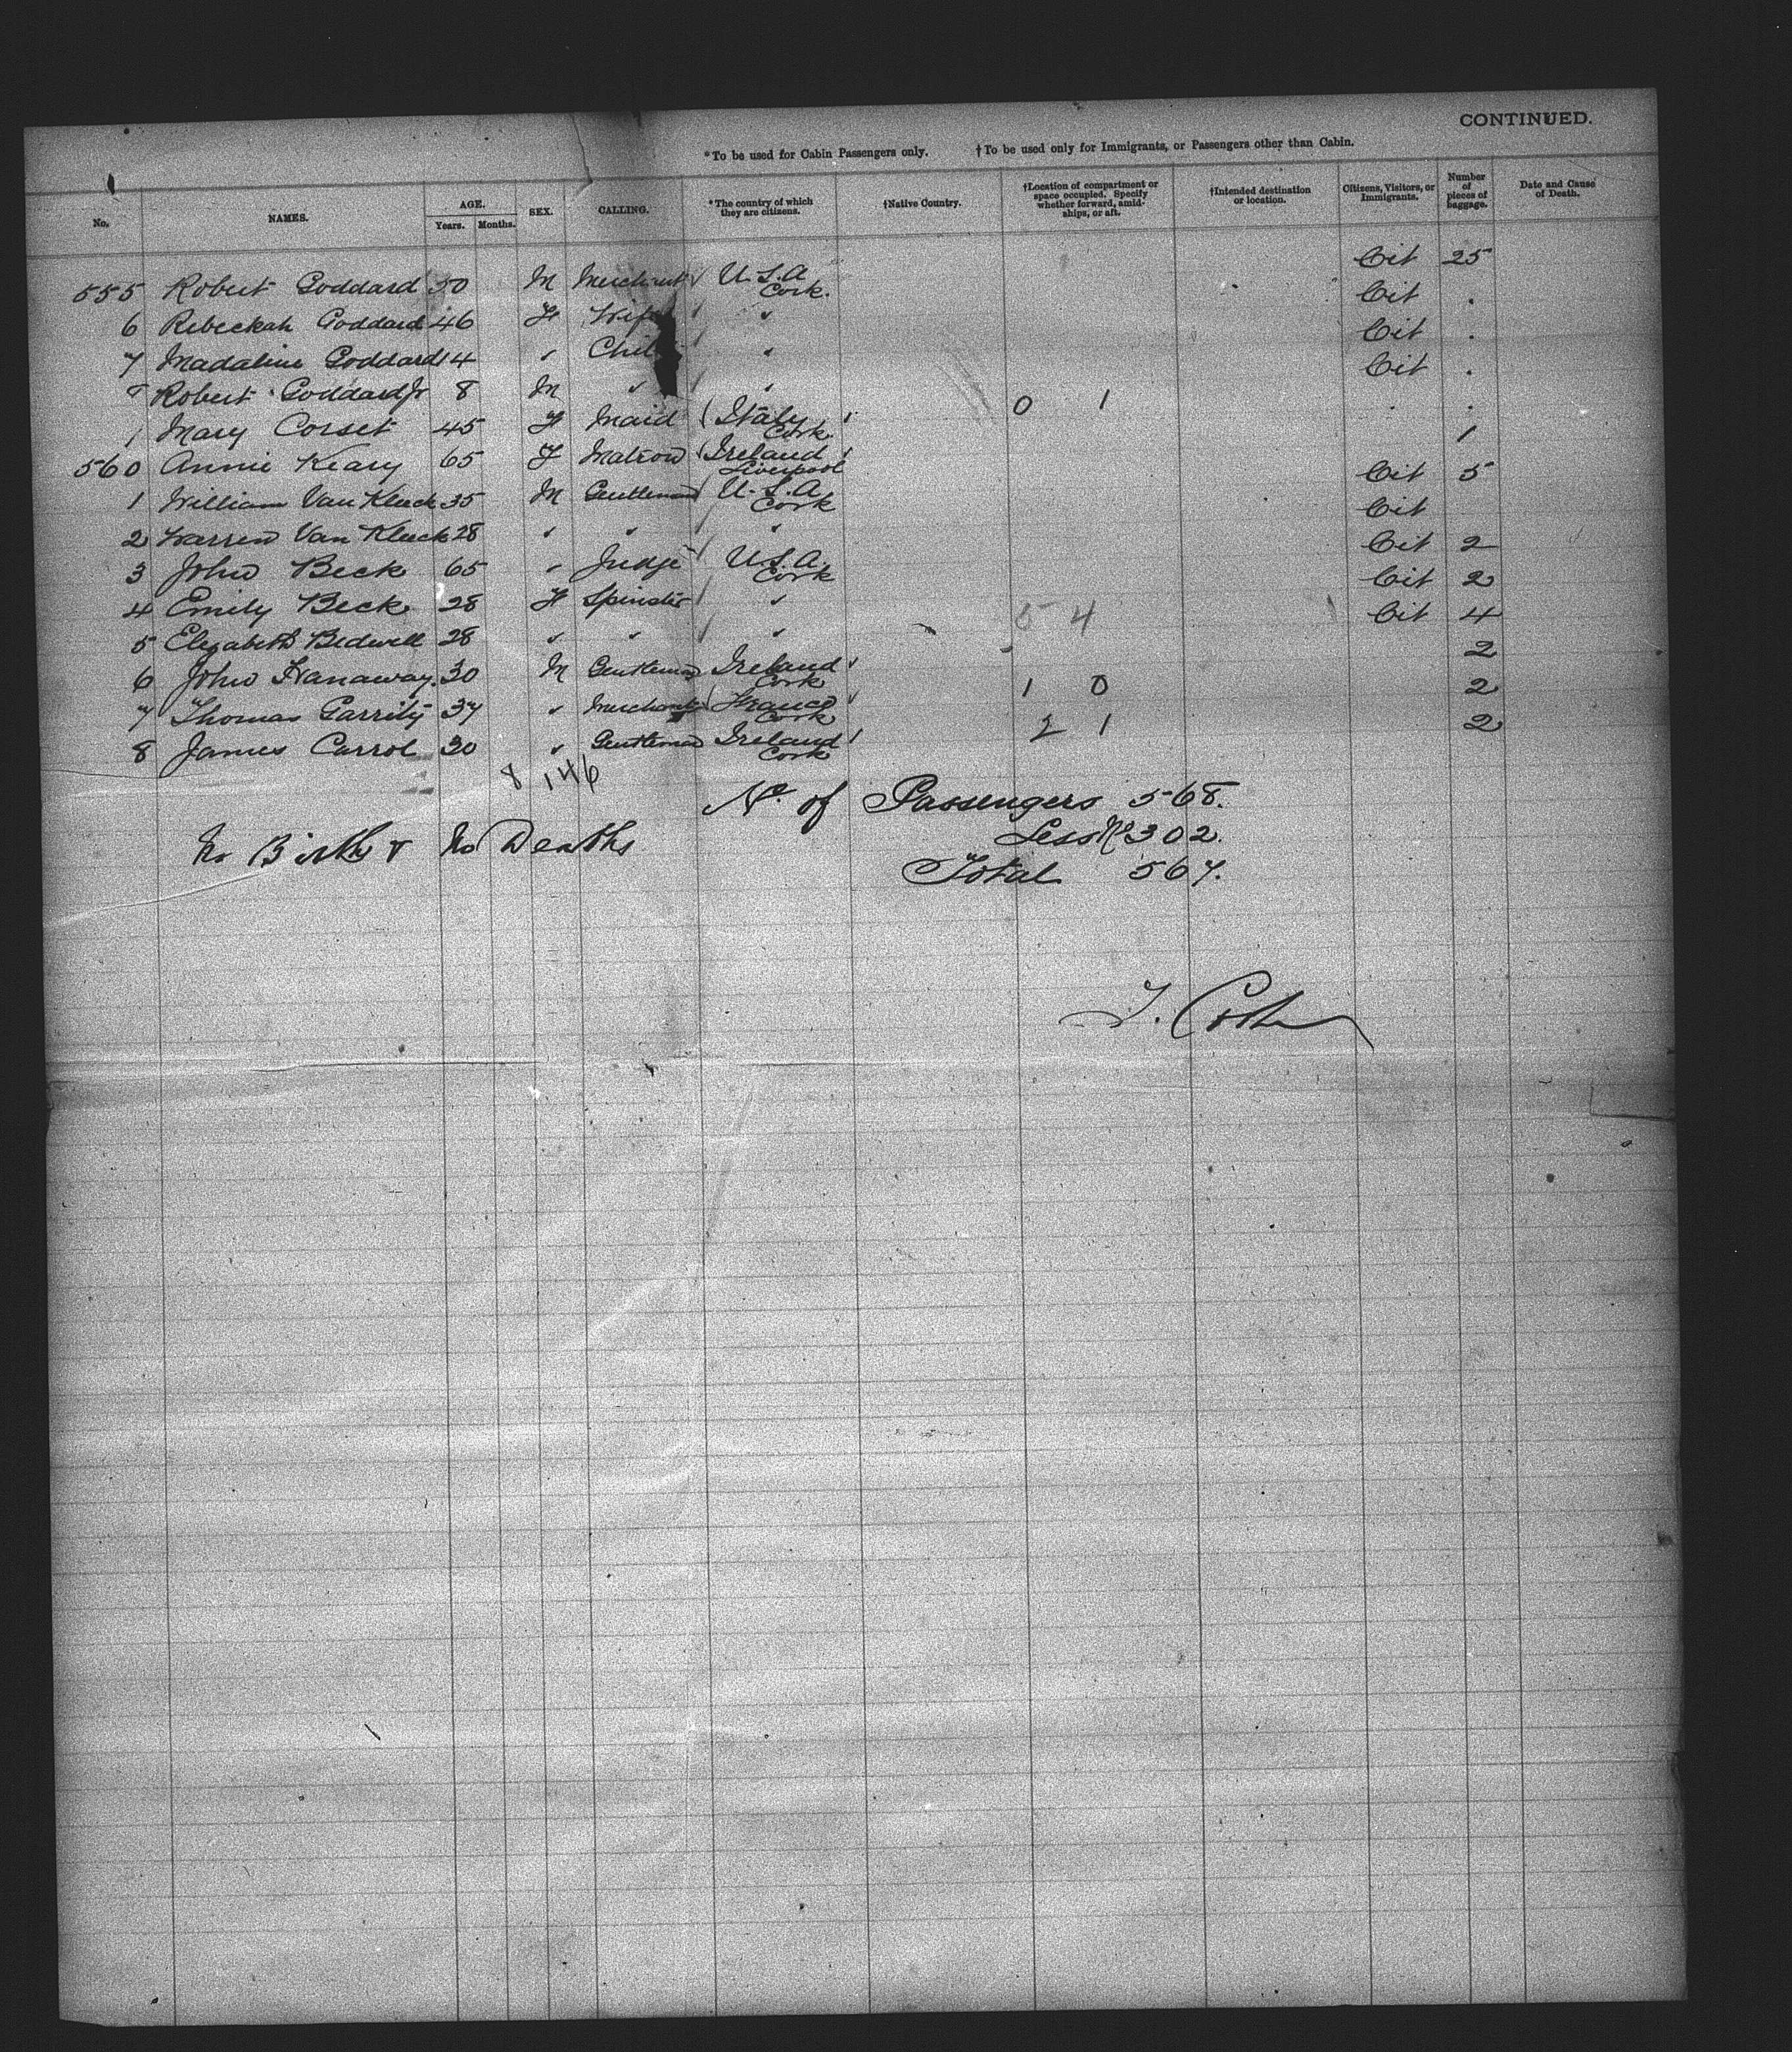 CONTINUED.
*To be used for Cabin Passengers only. †To be used only for Immigrants, or Passengers other than Cabin.
No. NAMES. AGE. Years. Months. SEX. CALLING. *The country of which they are citizens. †Native Country. †Location of compartment or space occupied. Specify whether forward, amidships, or aft. †Intended destination or location. Citizens, Visitors, or Immigrants. Number of pieces of baggage. Date and Cause of Death.
555 Robert Goddard 50 M Merchant U.S.A Cork. Cit 25
6 Rebeckah Goddard 46 F Wife " Cit .
7 Madaline Goddard 14 " Child " Cit .
8 Robert Goddard Jr 8 M " " Cit .
1 Mary Corset 45 F Maid Italy Cork 0 1 . .
560 Annie Keary 65 F Matron Ireland Liverpool 1
1 William Van Kleeck 35 M Gentleman U.S.A Cork Cit 5
2 Warren Van Kleeck 28 " " " Cit
3 John Beck 65 " Judge U.S.A. Cork Cit 2
4 Emily Beck 28 F Spinster " Cit 2
5 Elizabeth Bedwell 28 " " " 5 4 Cit 4
6 John Hanaway. 30 M Gentleman Ireland Cork 2
7 Thomas Garrity 37 " Merchant France Cork 1 0 2
8 James Carrol 30 " Gentleman Ireland Cork 2 1 2
8 146
No. of Passengers 568.
Less No 302.
Total 567.
No Births & No Deaths